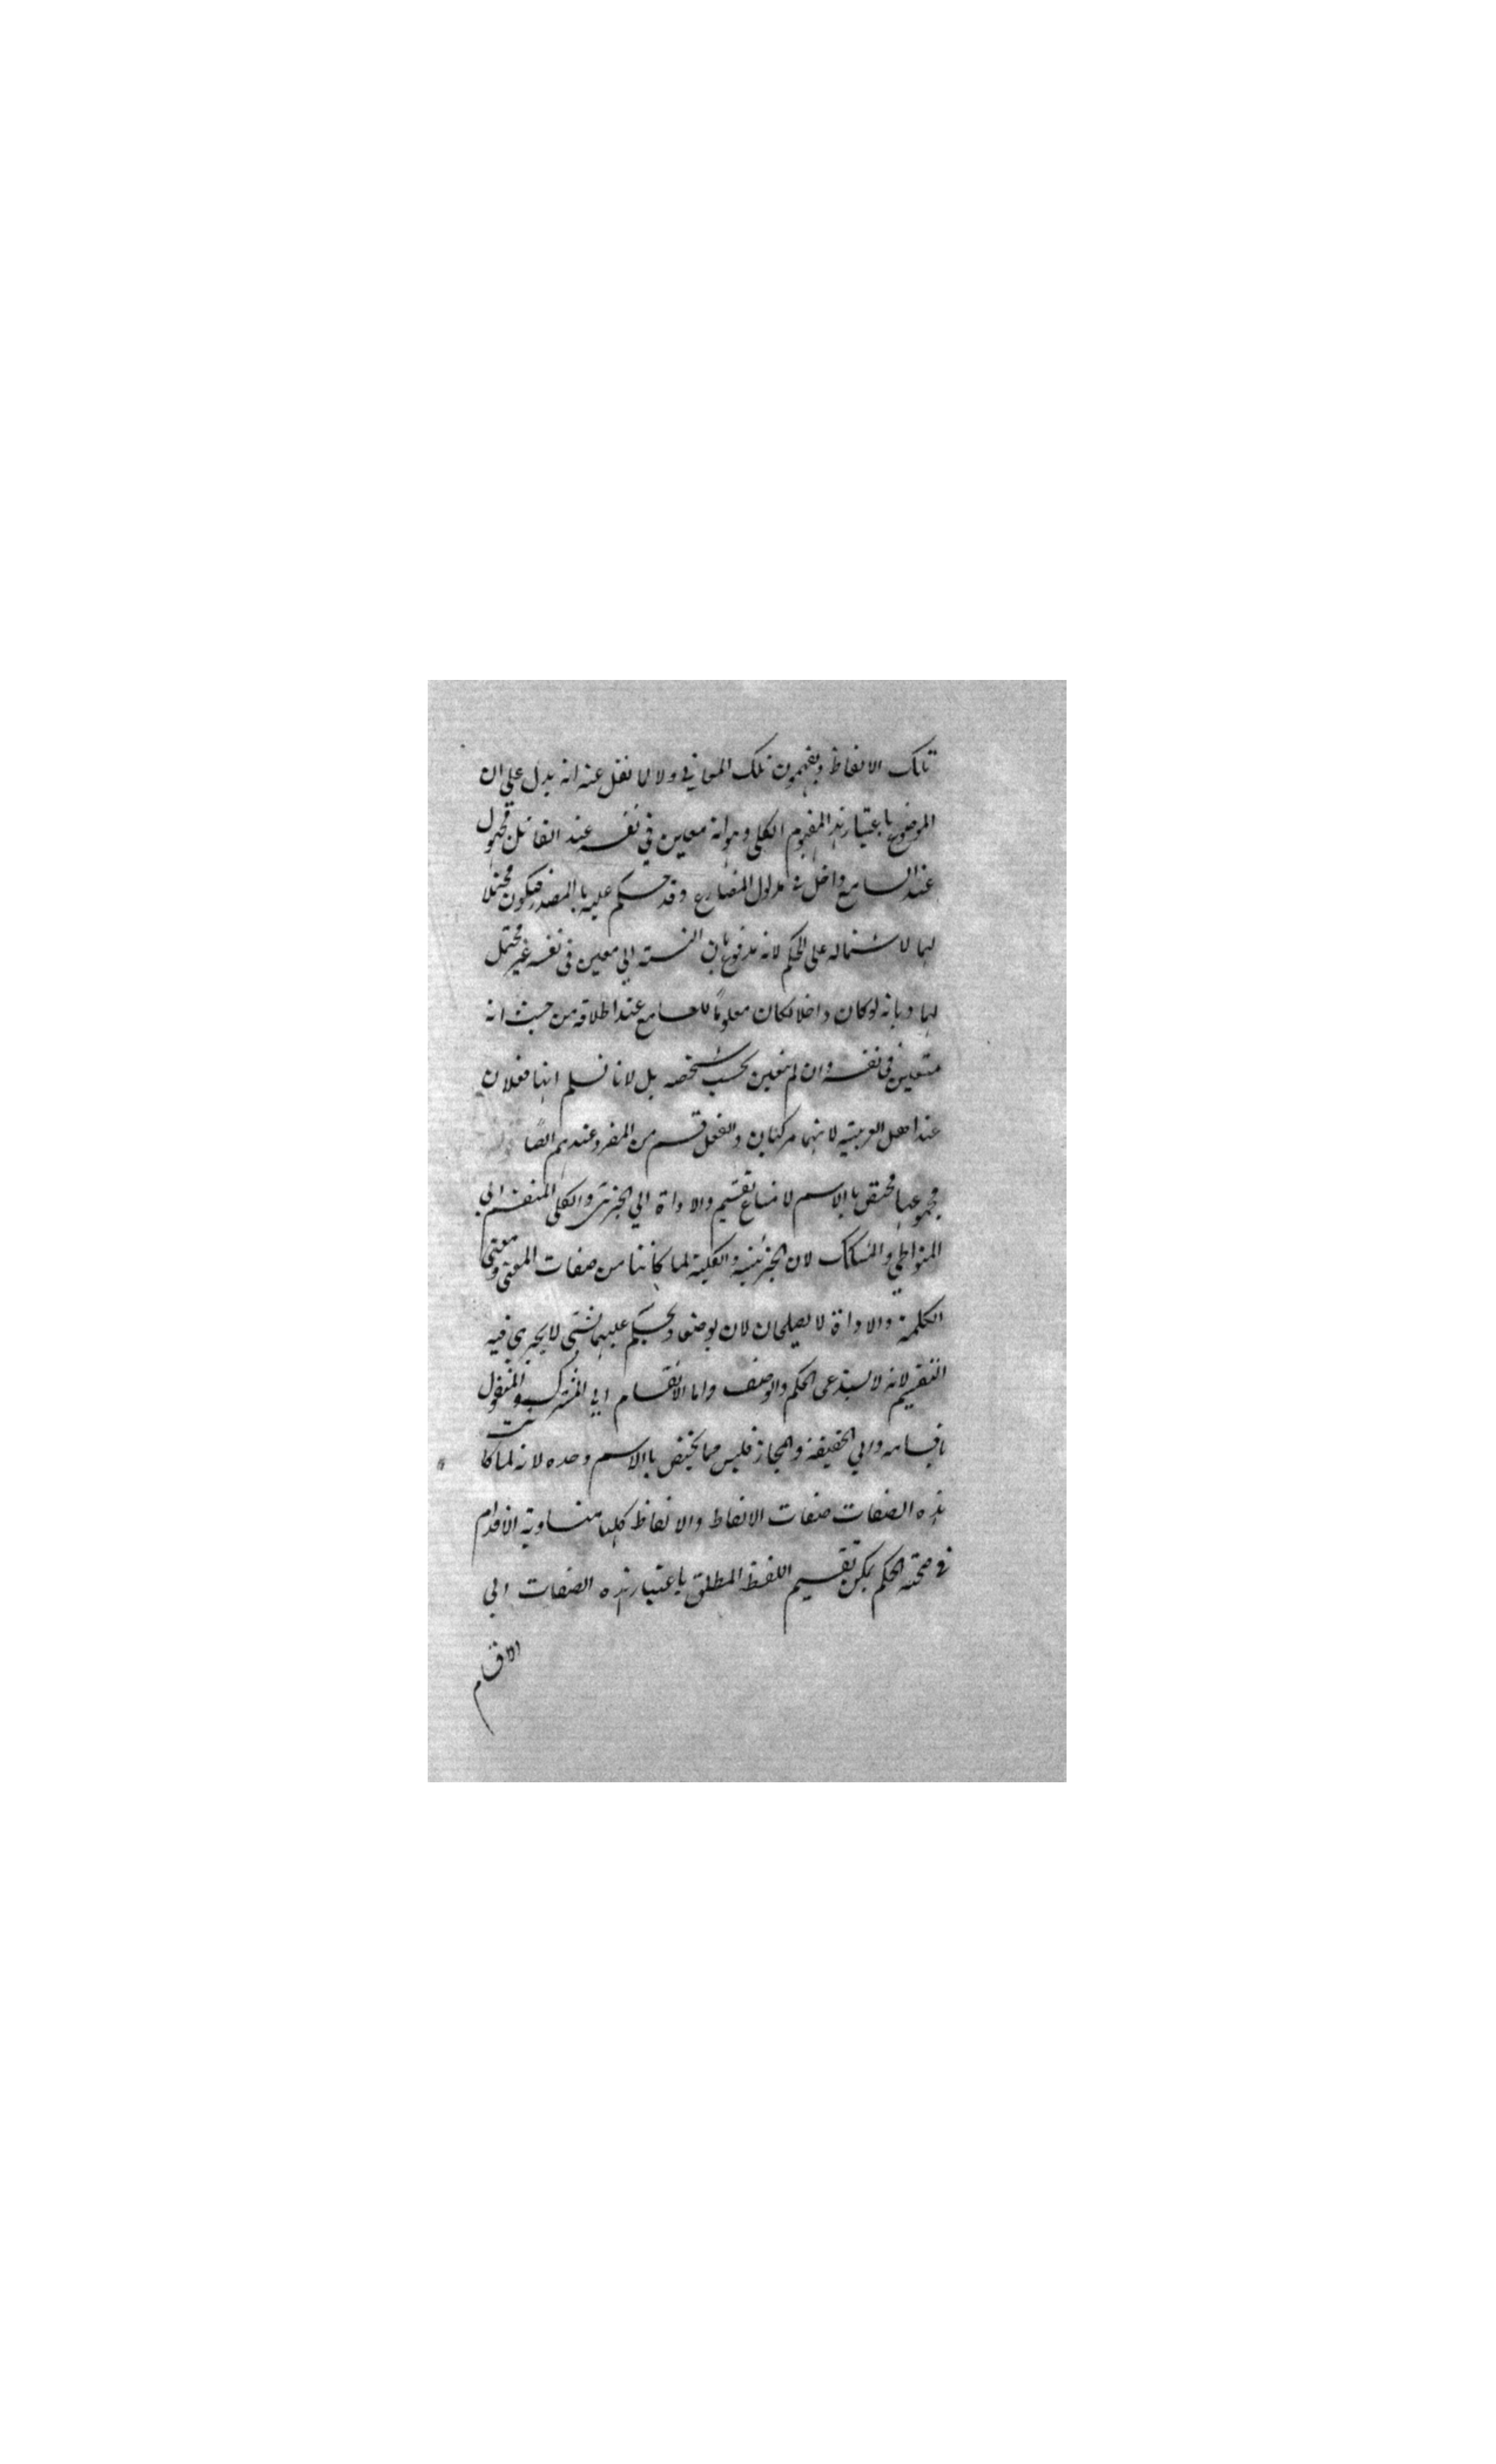 تلك الالفاظ ويفهمون تلك المعاني ولا لما نقل عنه انه يدل على ان
الموضوع باعتبار هذا المفهوم الكلى وهو انه معين في نفسه عند القائل مجهول
عند السامع داخل في مدلول المضارع وقد حكم عليه بالمصدر فيكون محتملا
لهما لاشتماله على الحكم لانه مدفوع بان النسبة الى معين فى نفسه غير محتمل
لهما وبانه لو كان داخلا لكان معلوما للسامع عند اطلاقه من حيث انه
متعين فى نفسه وان لم يتعين بحسب شخصه بل لانا نسلم انهما فعلان
عند اهل العربية لانهما مركبان والفعل قسم من المفرد عندهم ايضا
مجموعها مختص بالاسم لامتناع تقسيم والاداة الى الجزئى والكلى المنقسم الى
المتواطي والمشكك لان الجزئية والكلية لما كانتا من صفات المعنى ومعنى
الكلمة والاداة لا يصلحان لان يوصفا ويحكم عليهما بشئ لا يجرى فيه
التقسيم لانه لا يستدعى الحكم والوصف واما الانقسام الى المشترك والمنقول
باقسامه والى الحقيقة والمجاز فليس مما يختص بالاسم وحده لانه لما كانت
هذه الصفات صفات الالفاظ والالفاظ كلها متساوية الاقدام
فى صحة الحكم يمكن تقسيم اللفظ المطلق باعتبار هذه الصفات الى
الاقسام